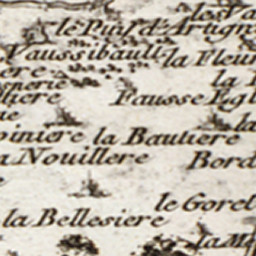 les Va
le Puis d'Arugn
Vaussibault la Fleur
ere la
sperie
liere Fausse Egl
ue la
piniere la Bautiere
a Nouillere Bord
e
le Goret
la Bellesiere
la Me